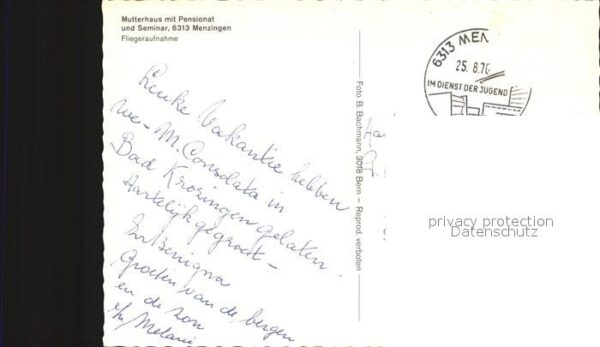 Mutterhaus mit Pensionat
und Seminar, 6313 Menzingen
Fliegeraufnahme
Leuke Vakantie hebben
we - M. Consolata in
Bad Krozingen gelaten.
Hartelijk gegroet -
Zr Benigna
Groeten van de bergen
en de zon
Zr Melanie
Foto B. Bachmann, 3018 Bern – Reprod. verboten
6313 MEN
25. 8. 76
IM DIENST DER JUGEND
privacy protection
Datenschutz